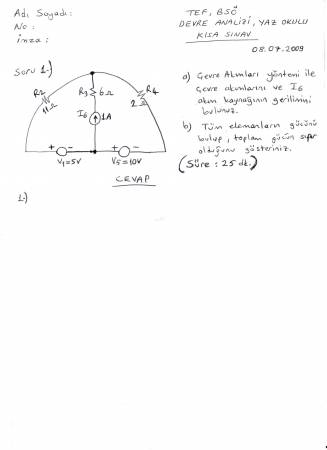 Adı Soyadı:
No :
imza :
TEF, BSÖ
DEVRE ANALİZİ, YAZ OKULU
KISA SINAV
08.07.2009
Soru 1-)
R2
11Ω
R3
6Ω
R4
2Ω
I6
1A
+ -
V1=5V
+ -
V5=10V
a) Çevre Akımları yöntemi ile
çevre akımlarını ve I6
akım kaynağının gerilimini
bulunuz.
b) Tüm elemanların gücünü
bulup, toplam gücün sıfır
olduğunu gösteriniz.
(Süre : 25 dk.)
CEVAP
1-)